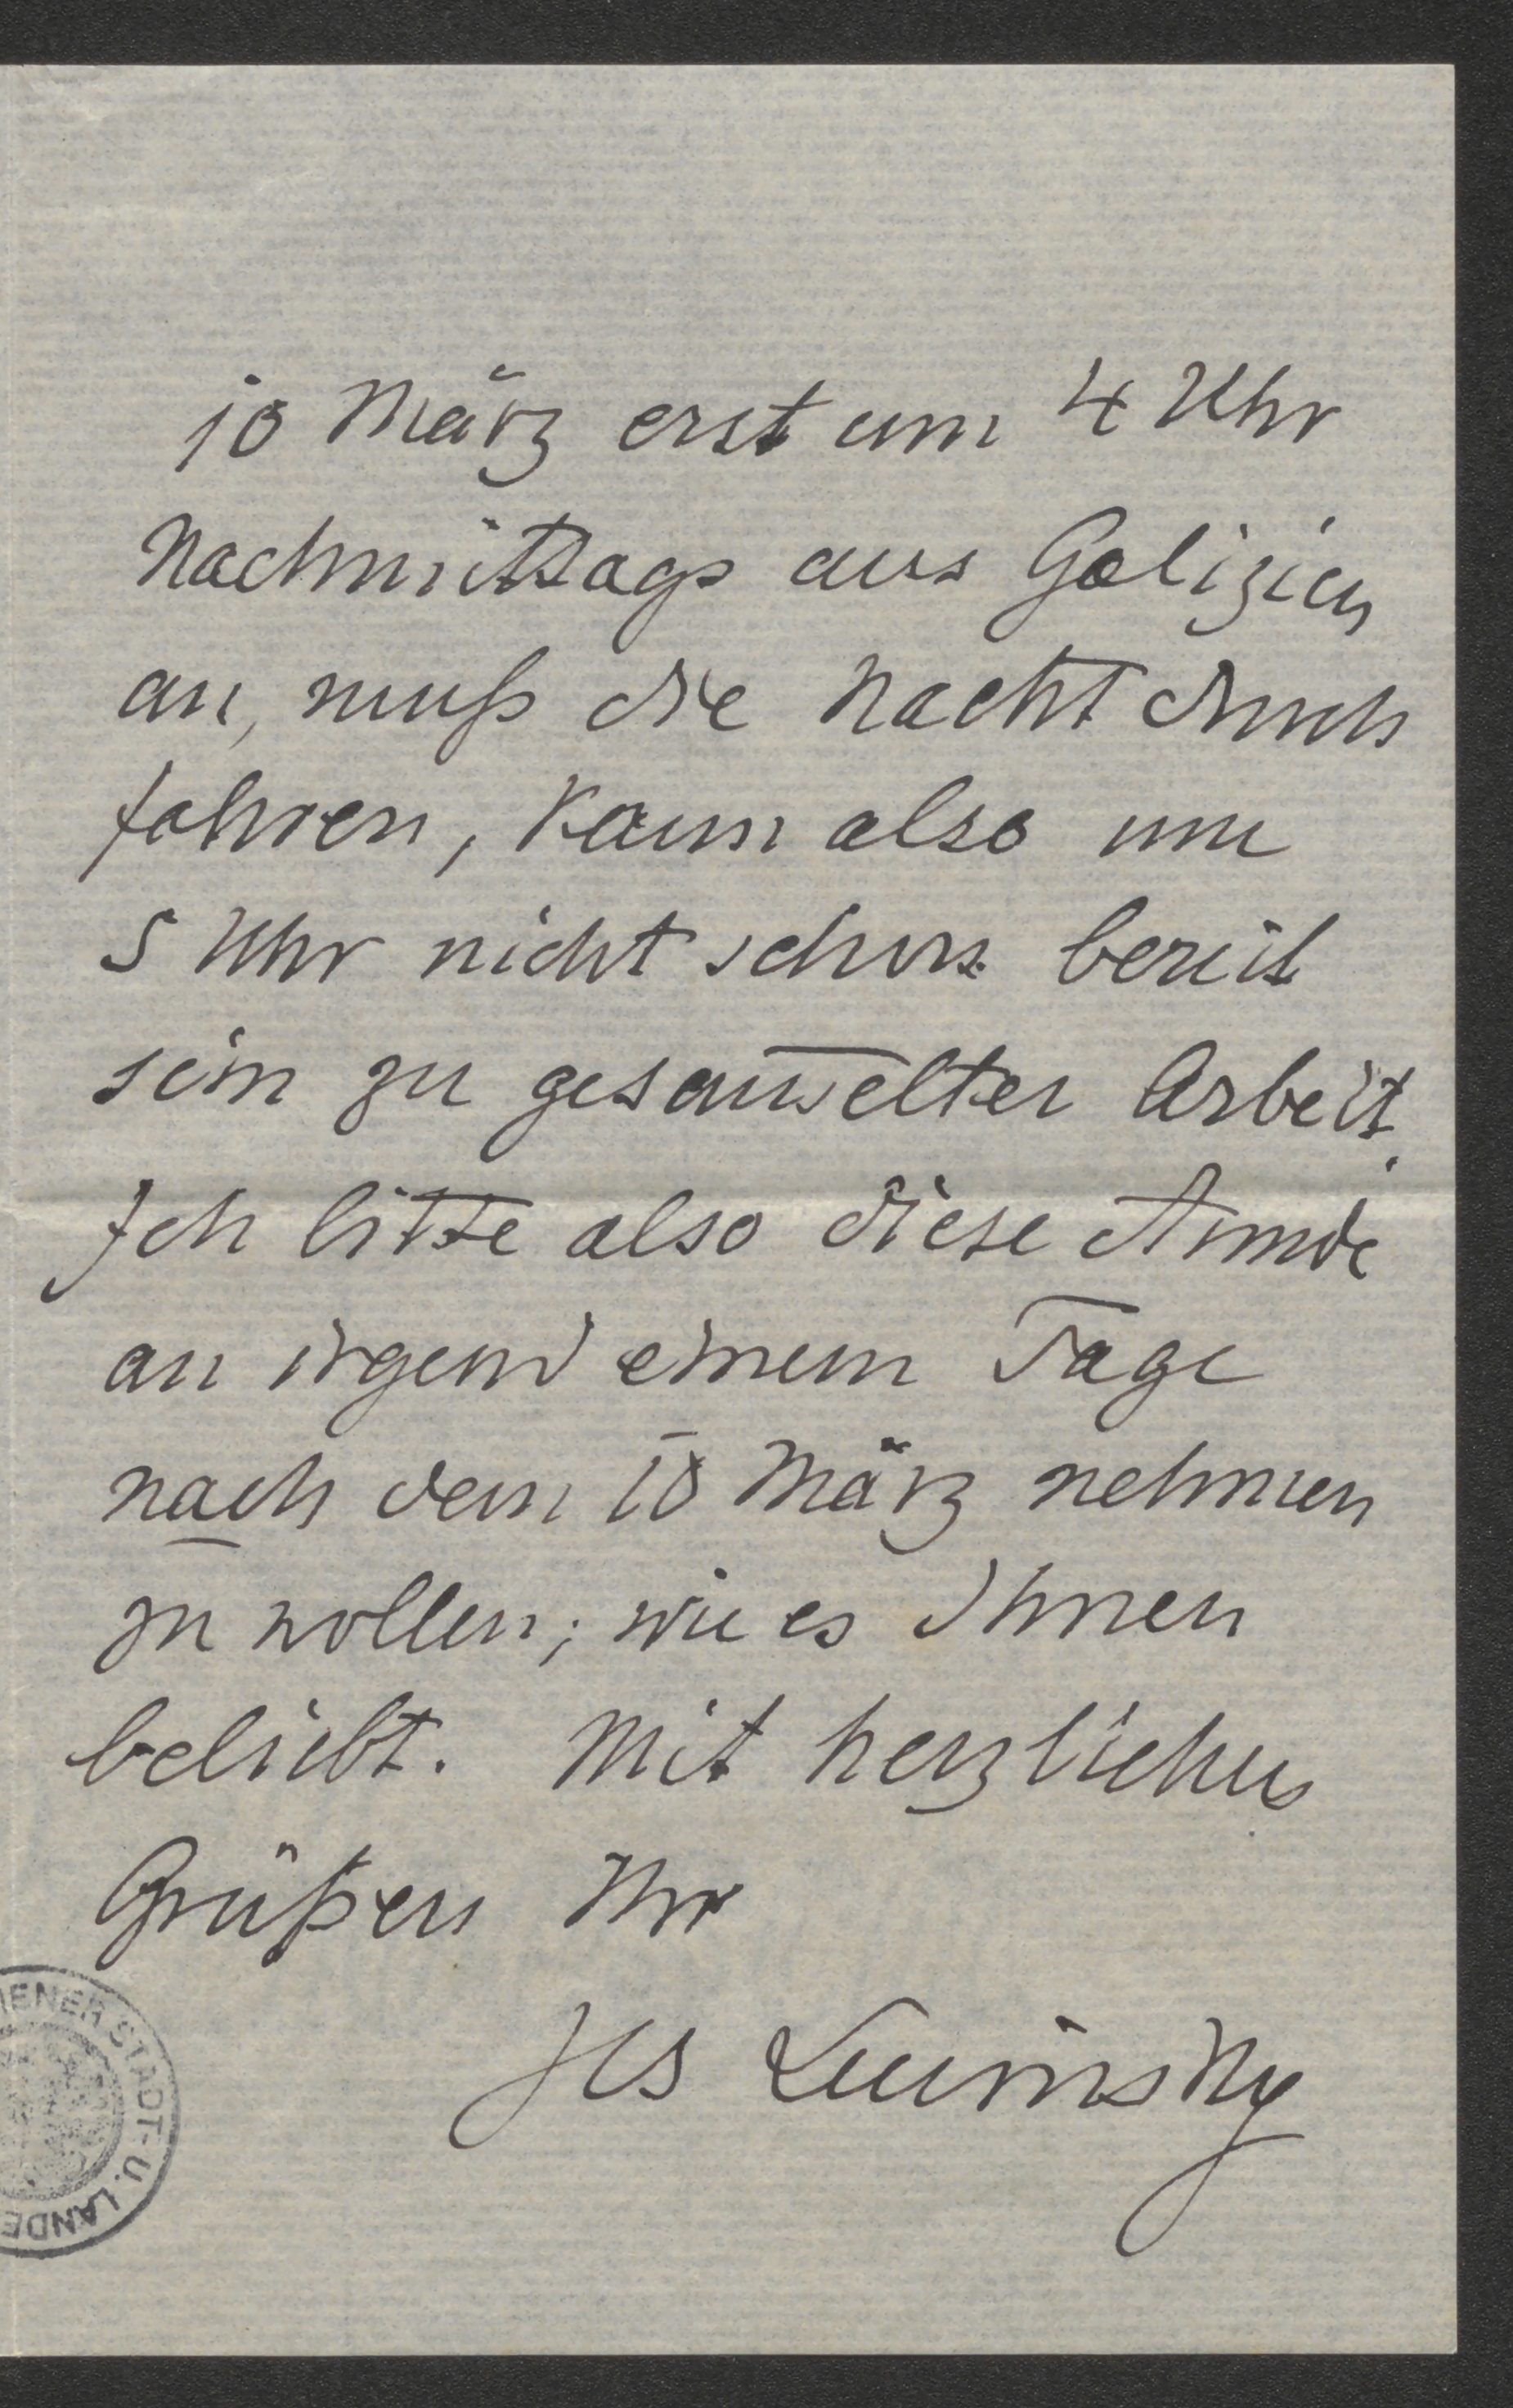 10 März erst um 4 Uhr
Nachmittags aus Galizien
an, muß die Nacht durch
fahren, kann also um
5 Uhr nicht schon bereit
sein zu gesam̅elter Arbeit.
Ich bitte also diese Stunde
an irgend einem Tage
nach dem 10 März nehmen
zu wollen; wie es Ihnen
beliebt. Mit herzlichen
Grüßen Ihr
Jos Lewinsky
IENER STADT- U. LANDE